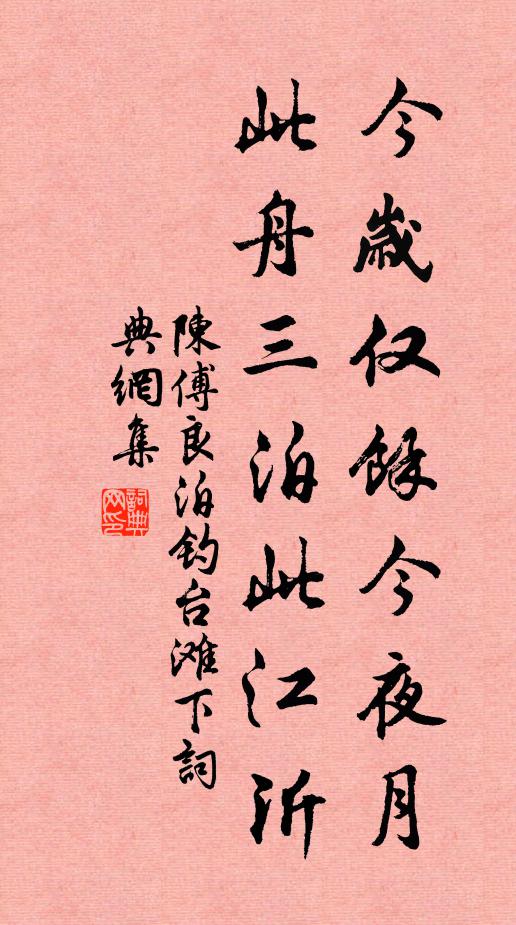 今歲仅餘今夜月
此舟三泊此江沂
陳傅良泊钓台滩下詞
典網集
詞典网印